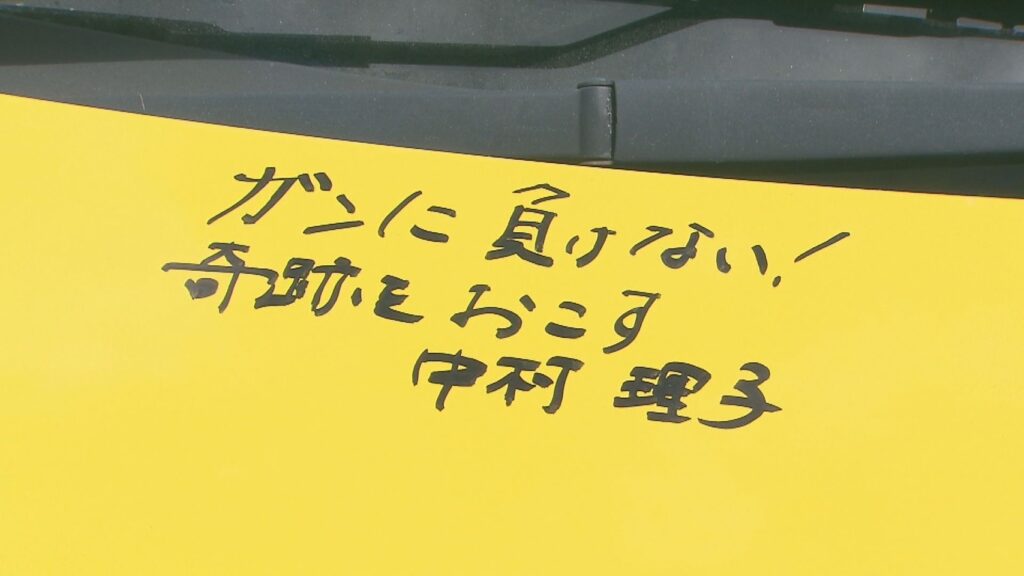 ガンに負けない!
奇跡をおこす
中村 理子